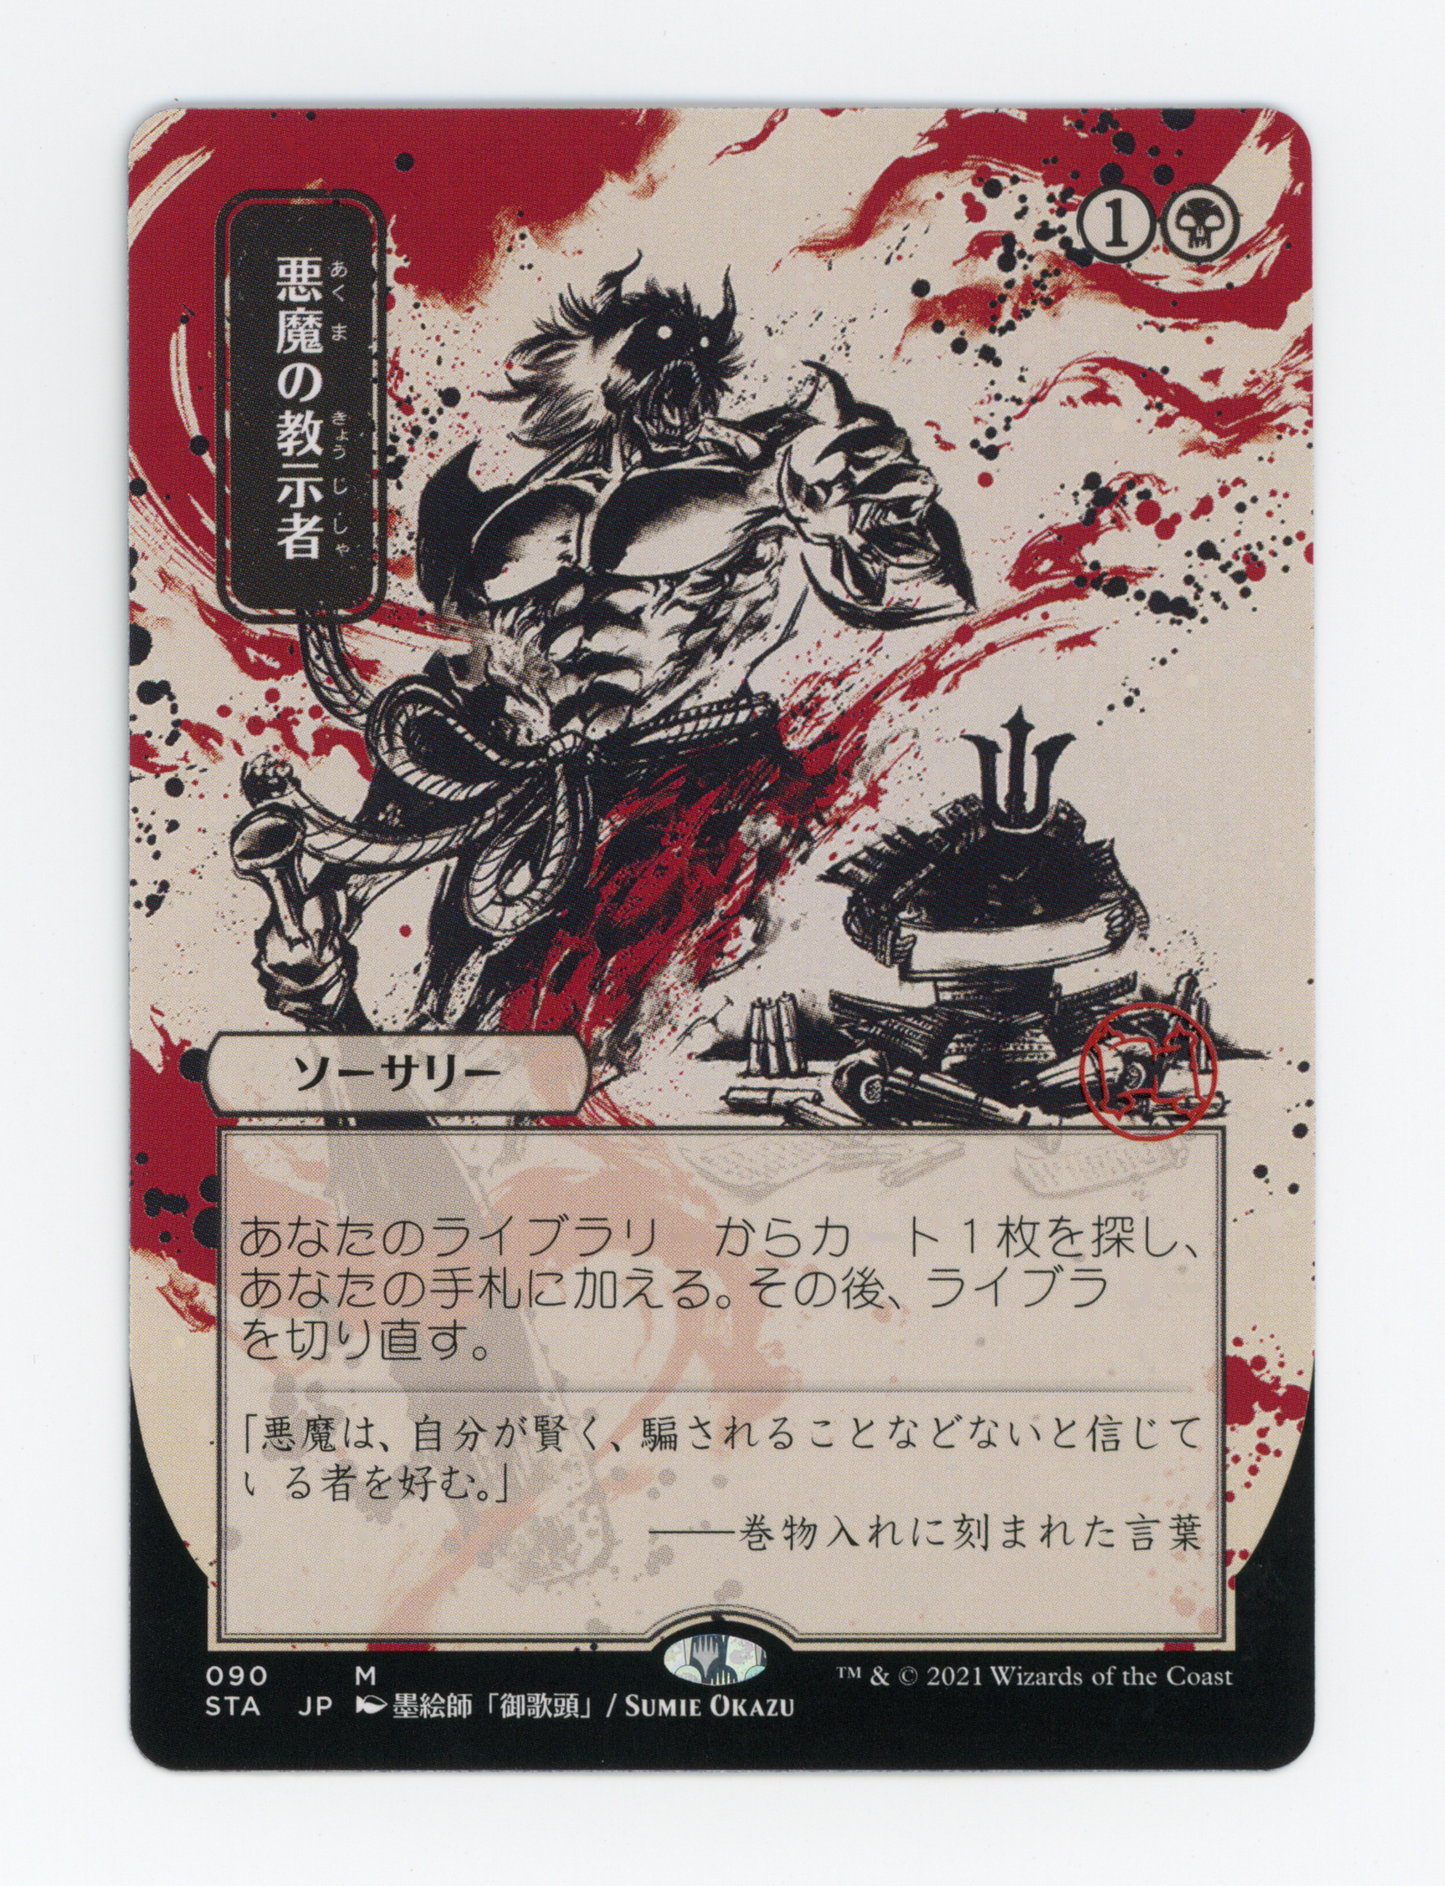 悪魔の教示者
あくま きょうじしゃ
1
ソーサリー
あなたのライブラリ　からカ　ト１枚を探し、
あなたの手札に加える。その後、ライブラ
を切り直す。
「悪魔は、自分が賢く、騙されることなどないと信じて
いる者を好む。」
――巻物入れに刻まれた言葉
090 M ™ & © 2021 Wizards of the Coast
STA JP 墨絵師「御歌頭」/ SUMIE OKAZU